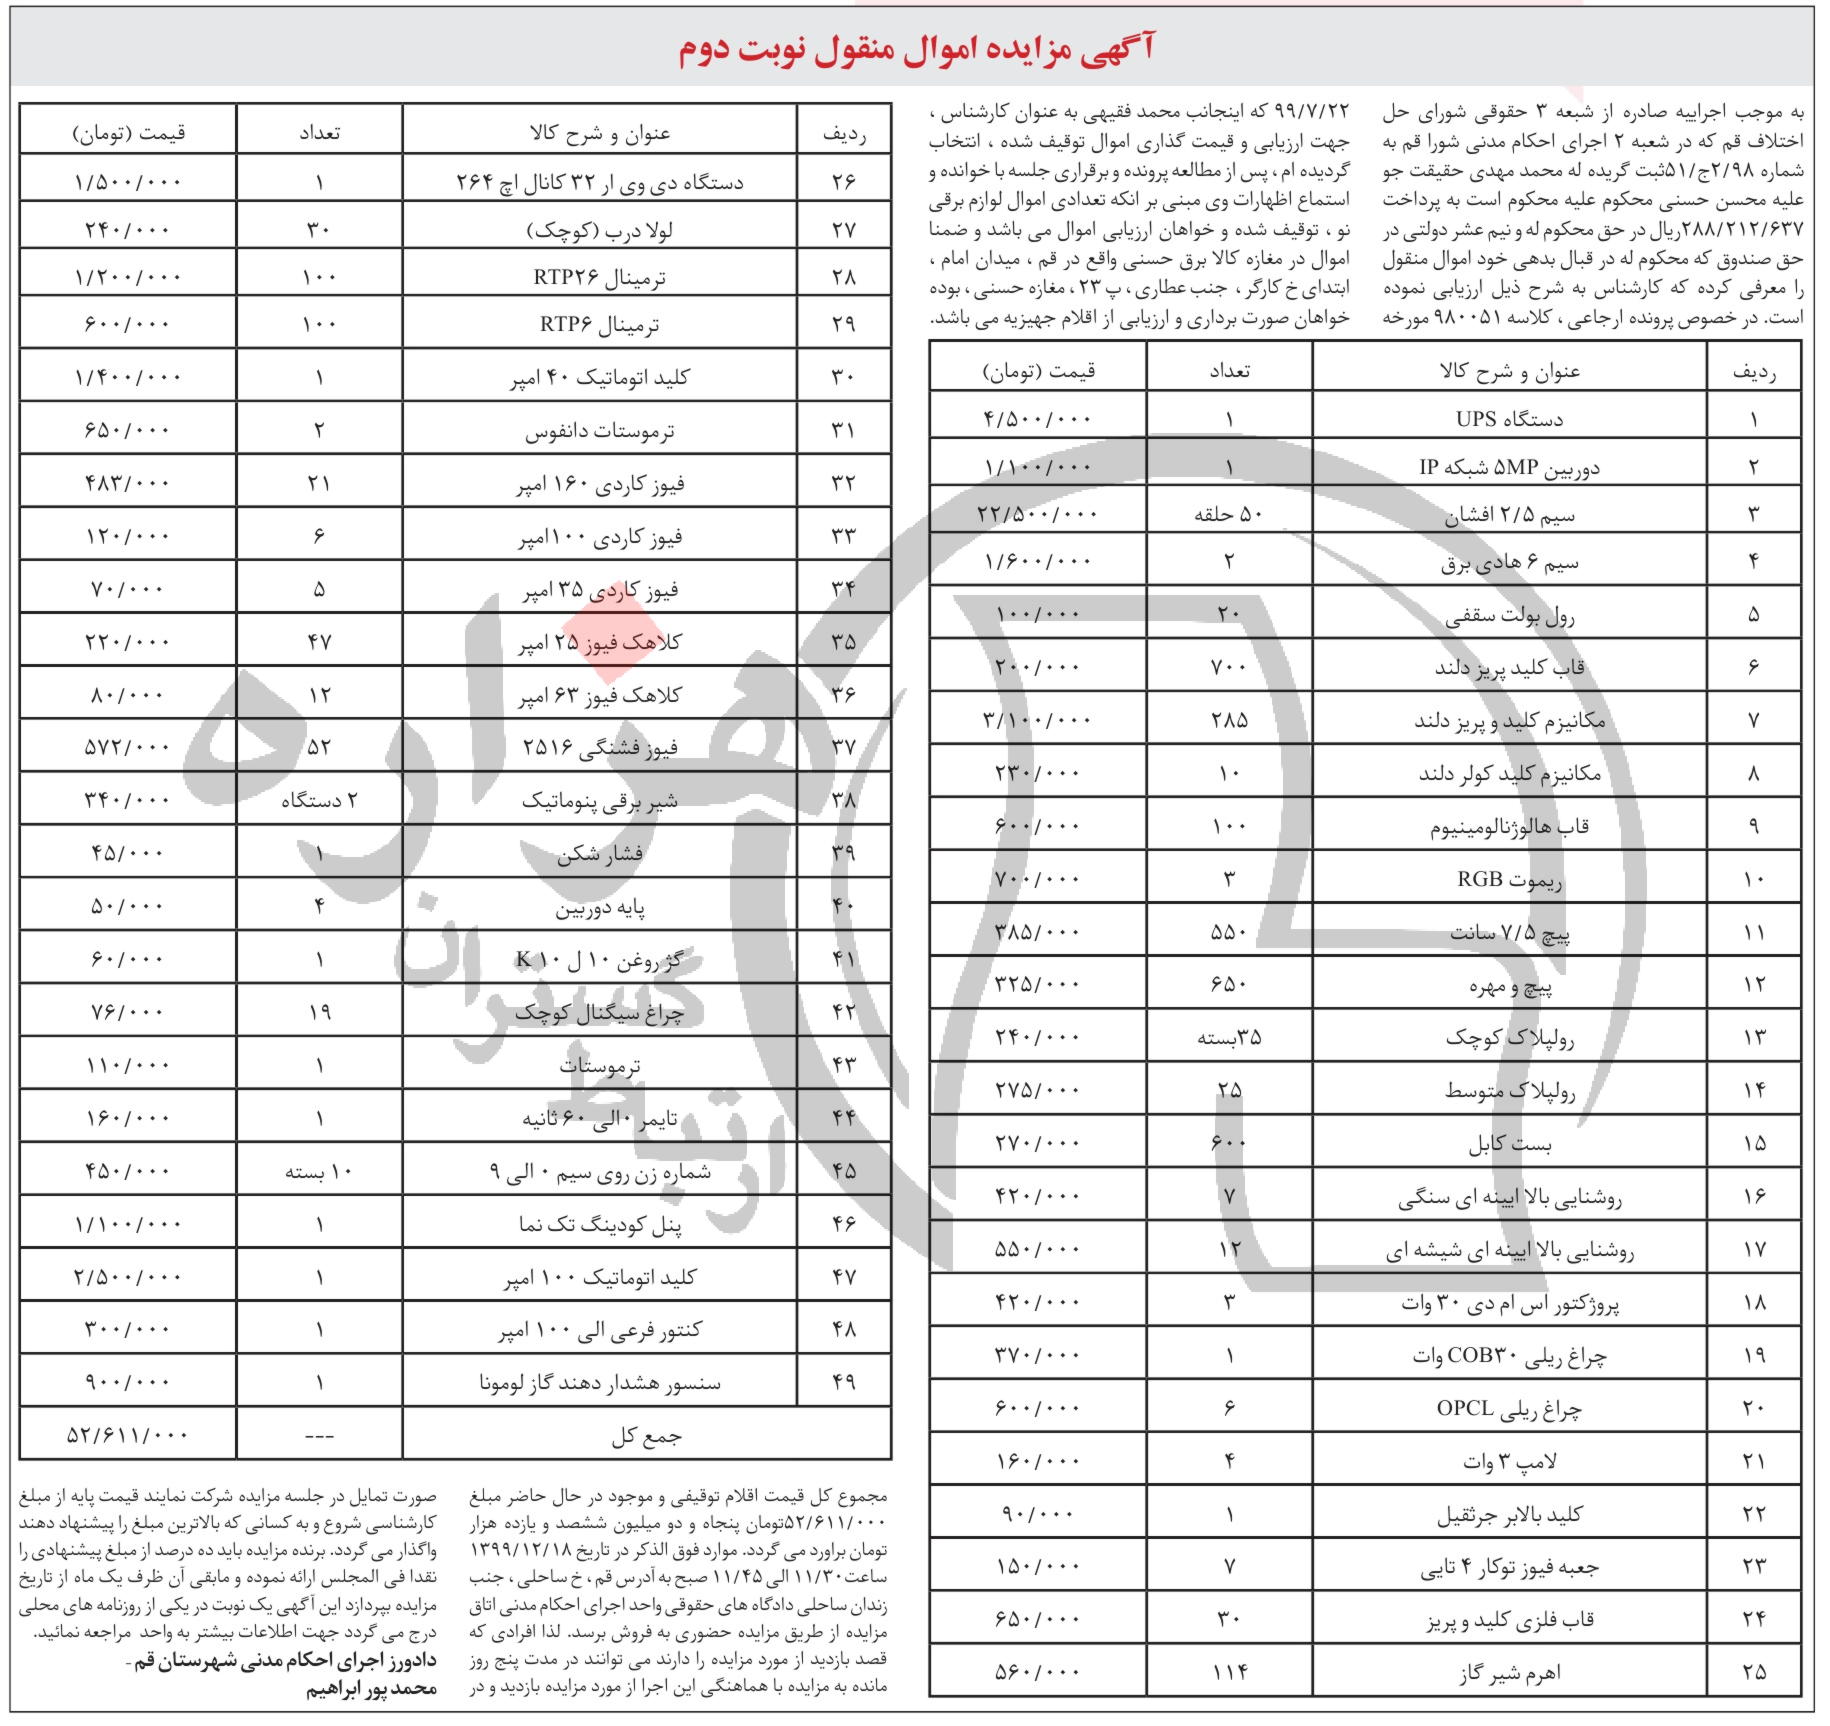 آگهی مزایده اموال منقول نوبت دوم
به موجب اجراییه صادره از شعبه ۳ حقوقی شورای حل
اختلاف قم که در شعبه ۲ اجرای احکام مدنی شورا قم به
شماره ۲/۹۸ج/۵۱ثبت گریده له محمد مهدی حقیقت جو
علیه محسن حسنی محکوم علیه محکوم است به پرداخت
۲۸۸/۲۱۲/۶۳۷ریال در حق محکوم له و نیم عشر دولتی در
حق صندوق که محکوم له در قبال بدهی خود اموال منقول
را معرفی کرده که کارشناس به شرح ذیل ارزیابی نموده
است. در خصوص پرونده ارجاعی ، کلاسه ۹۸۰۰۵۱ مورخه
۹۹/۷/۲۲ که اینجانب محمد فقیهی به عنوان کارشناس ،
جهت ارزیابی و قیمت گذاری اموال توقیف شده ، انتخاب
گردیده ام ، پس از مطالعه پرونده و برقراری جلسه با خوانده و
استماع اظهارات وی مبنی بر انکه تعدادی اموال لوازم برقی
نو ، توقیف شده و خواهان ارزیابی اموال می باشد و ضمنا
اموال در مغازه کالا برق حسنی واقع در قم ، میدان امام ،
ابتدای خ کارگر ، جنب عطاری ، پ ۲۳ ، مغازه حسنی ، بوده
خواهان صورت برداری و ارزیابی از اقلام جهیزیه می باشد.
ردیف عنوان و شرح کالا تعداد قیمت (تومان)
۱ دستگاه UPS ۱ ۴/۵۰۰/۰۰۰
۲ دوربین ۵MP شبکه IP ۱ ۱/۱۰۰/۰۰۰
۳ سیم ۲/۵ افشان ۵۰ حلقه ۲۲/۵۰۰/۰۰۰
۴ سیم ۶ هادی برق ۲ ۱/۶۰۰/۰۰۰
۵ رول بولت سقفی ۲۰ ۱۰۰/۰۰۰
۶ قاب کلید پریز دلند ۷۰۰ ۲۰۰/۰۰۰
۷ مکانیزم کلید و پریز دلند ۲۸۵ ۳/۱۰۰/۰۰۰
۸ مکانیزم کلید کولر دلند ۱۰ ۲۳۰/۰۰۰
۹ قاب هالوژنالومینیوم ۱۰۰ ۶۰۰/۰۰۰
۱۰ ریموت RGB ۳ ۷۰۰/۰۰۰
۱۱ پیچ ۷/۵ سانت ۵۵۰ ۳۸۵/۰۰۰
۱۲ پیچ و مهره ۶۵۰ ۳۲۵/۰۰۰
۱۳ رولپلاک کوچک ۳۵بسته ۲۴۰/۰۰۰
۱۴ رولپلاک متوسط ۲۵ ۲۷۵/۰۰۰
۱۵ بست کابل ۶۰۰ ۲۷۰/۰۰۰
۱۶ روشنایی بالا ایینه ای سنگی ۷ ۴۲۰/۰۰۰
۱۷ روشنایی بالا ایینه ای شیشه ای ۱۲ ۵۵۰/۰۰۰
۱۸ پروژکتور اس ام دی ۳۰ وات ۳ ۴۲۰/۰۰۰
۱۹ چراغ ریلی COB۳۰ وات ۱ ۳۷۰/۰۰۰
۲۰ چراغ ریلی OPCL ۶ ۶۰۰/۰۰۰
۲۱ لامپ ۳ وات ۴ ۱۶۰/۰۰۰
۲۲ کلید بالابر جرثقیل ۱ ۹۰/۰۰۰
۲۳ جعبه فیوز توکار ۴ تایی ۷ ۱۵۰/۰۰۰
۲۴ قاب فلزی کلید و پریز ۳۰ ۶۵۰/۰۰۰
۲۵ اهرم شیر گاز ۱۱۴ ۵۶۰/۰۰۰
ردیف عنوان و شرح کالا تعداد قیمت (تومان)
۲۶ دستگاه دی وی ار ۳۲ کانال اچ ۲۶۴ ۱ ۱/۵۰۰/۰۰۰
۲۷ لولا درب (کوچک) ۳۰ ۲۴۰/۰۰۰
۲۸ ترمینال RTP۲۶ ۱۰۰ ۱/۲۰۰/۰۰۰
۲۹ ترمینال RTP۶ ۱۰۰ ۶۰۰/۰۰۰
۳۰ کلید اتوماتیک ۴۰ امپر ۱ ۱/۴۰۰/۰۰۰
۳۱ ترموستات دانفوس ۲ ۶۵۰/۰۰۰
۳۲ فیوز کاردی ۱۶۰ امپر ۲۱ ۴۸۳/۰۰۰
۳۳ فیوز کاردی ۱۰۰امپر ۶ ۱۲۰/۰۰۰
۳۴ فیوز کاردی ۳۵ امپر ۵ ۷۰/۰۰۰
۳۵ کلاهک فیوز ۲۵ امپر ۴۷ ۲۲۰/۰۰۰
۳۶ کلاهک فیوز ۶۳ امپر ۱۲ ۸۰/۰۰۰
۳۷ فیوز فشنگی ۲۵۱۶ ۵۲ ۵۷۲/۰۰۰
۳۸ شیر برقی پنوماتیک ۲ دستگاه ۳۴۰/۰۰۰
۳۹ فشار شکن ۱ ۴۵/۰۰۰
۴۰ پایه دوربین ۴ ۵۰/۰۰۰
۴۱ گژ روغن ۱۰ ل ۱۰ K ۱ ۶۰/۰۰۰
۴۲ چراغ سیگنال کوچک ۱۹ ۷۶/۰۰۰
۴۳ ترموستات ۱ ۱۱۰/۰۰۰
۴۴ تایمر ۰الی ۶۰ ثانیه ۱ ۱۶۰/۰۰۰
۴۵ شماره زن روی سیم ۰ الی ۹ ۱۰ بسته ۴۵۰/۰۰۰
۴۶ پنل کودینگ تک نما ۱ ۱/۱۰۰/۰۰۰
۴۷ کلید اتوماتیک ۱۰۰ امپر ۱ ۲/۵۰۰/۰۰۰
۴۸ کنتور فرعی الی ۱۰۰ امپر ۱ ۳۰۰/۰۰۰
۴۹ سنسور هشدار دهند گاز لومونا ۱ ۹۰۰/۰۰۰
جمع کل --- ۵۲/۶۱۱/۰۰۰
مجموع کل قیمت اقلام توقیفی و موجود در حال حاضر مبلغ
۵۲/۶۱۱/۰۰۰تومان پنجاه و دو میلیون ششصد و یازده هزار
تومان براورد می گردد. موارد فوق الذکر در تاریخ ۱۳۹۹/۱۲/۱۸
ساعت ۱۱/۳۰ الی ۱۱/۴۵ صبح به آدرس قم ، خ ساحلی ، جنب
زندان ساحلی دادگاه های حقوقی واحد اجرای احکام مدنی اتاق
مزایده از طریق مزایده حضوری به فروش برسد. لذا افرادی که
قصد بازدید از مورد مزایده را دارند می توانند در مدت پنج روز
مانده به مزایده با هماهنگی این اجرا از مورد مزایده بازدید و در
صورت تمایل در جلسه مزایده شرکت نمایند قیمت پایه از مبلغ
کارشناسی شروع و به کسانی که بالاترین مبلغ را پیشنهاد دهند
واگذار می گردد. برنده مزایده باید ده درصد از مبلغ پیشنهادی را
نقدا فی المجلس ارائه نموده و مابقی آن ظرف یک ماه از تاریخ
مزایده بپردازد این آگهی یک نوبت در یکی از روزنامه های محلی
درج می گردد جهت اطلاعات بیشتر به واحد مراجعه نمائید.
دادورز اجرای احکام مدنی شهرستان قم -
محمد پور ابراهیم
هزاره
گستران
ارتباط